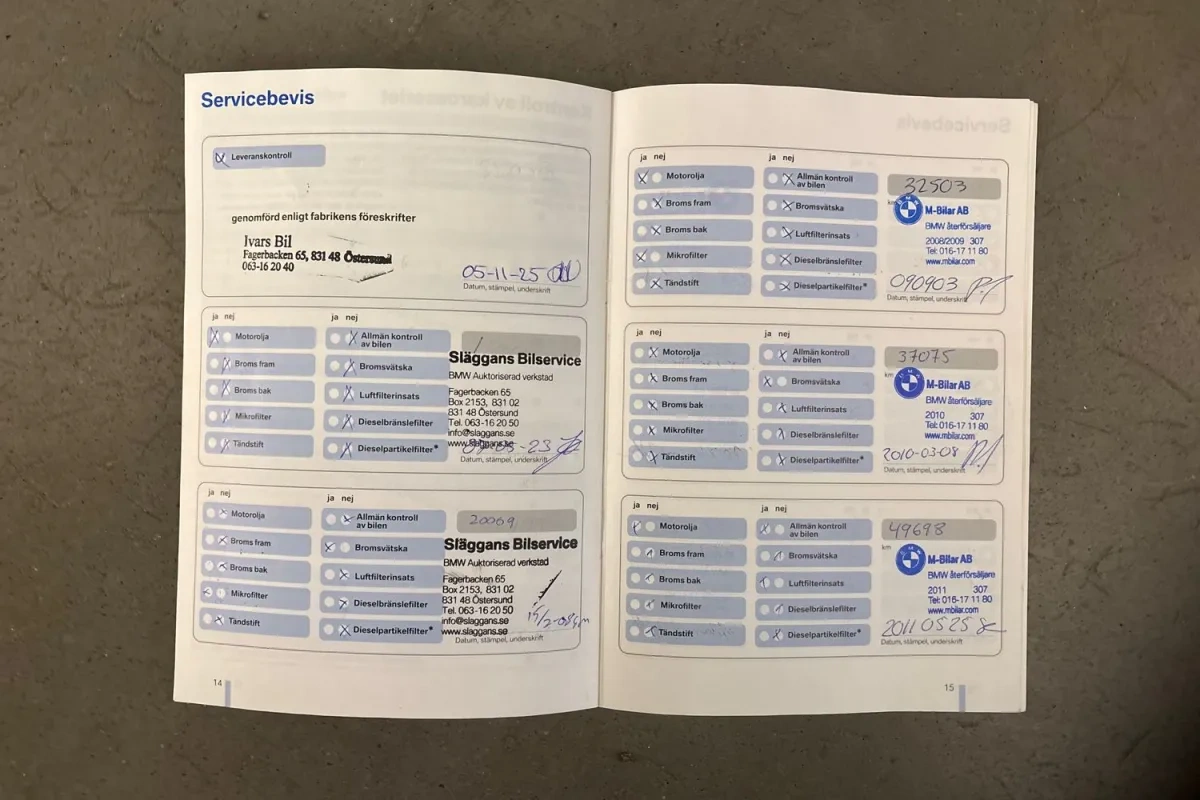 Servicebevis
Leveranskontroll
genomförd enligt fabrikens föreskrifter
Ivars Bil
Fagerbacken 65, 831 48 Östersund
063-16 20 40
05-11-25
Datum, stämpel, underskrift
ja nej
ja nej
Motorolja
Allmän kontroll
av bilen
Broms fram
Bromsvätska
Broms bak
Luftfilterinsats
Mikrofilter
Dieselbränslefilter
Tändstift
Dieselpartikelfilter*
Släggans Bilservice
BMW Auktoriserad verkstad
Fagerbacken 65
Box 2153, 831 02
831 48 Östersund
Tel. 063-16 20 50
info@slaggans.se
www.slaggans.se
Datum, stämpel, underskrift
ja nej
ja nej
Motorolja
Allmän kontroll
av bilen
Broms fram
Bromsvätska
Broms bak
Luftfilterinsats
Mikrofilter
Dieselbränslefilter
Tändstift
Dieselpartikelfilter*
20069
Släggans Bilservice
BMW Auktoriserad verkstad
Fagerbacken 65
Box 2153, 831 02
831 48 Östersund
Tel. 063-16 20 50
info@slaggans.se
www.slaggans.se
Datum, stämpel, underskrift
14
ja nej
ja nej
Motorolja
Allmän kontroll
av bilen
Broms fram
Bromsvätska
Broms bak
Luftfilterinsats
Mikrofilter
Dieselbränslefilter
Tändstift
Dieselpartikelfilter*
32503
km
BMW
M-Bilar AB
BMW återförsäljare
2008/2009 307
Tel: 016-17 11 80
www.mbilar.com
090903
Datum, stämpel, underskrift
ja nej
ja nej
Motorolja
Allmän kontroll
av bilen
Broms fram
Bromsvätska
Broms bak
Luftfilterinsats
Mikrofilter
Dieselbränslefilter
Tändstift
Dieselpartikelfilter*
37075
km
BMW
M-Bilar AB
BMW återförsäljare
2010 307
Tel: 016-17 11 80
www.mbilar.com
2010-03-08
Datum, stämpel, underskrift
ja nej
ja nej
Motorolja
Allmän kontroll
av bilen
Broms fram
Bromsvätska
Broms bak
Luftfilterinsats
Mikrofilter
Dieselbränslefilter
Tändstift
Dieselpartikelfilter*
49698
km
BMW
M-Bilar AB
BMW återförsäljare
2011 307
Tel: 016-17 11 80
www.mbilar.com
2011 05 25
Datum, stämpel, underskrift
15